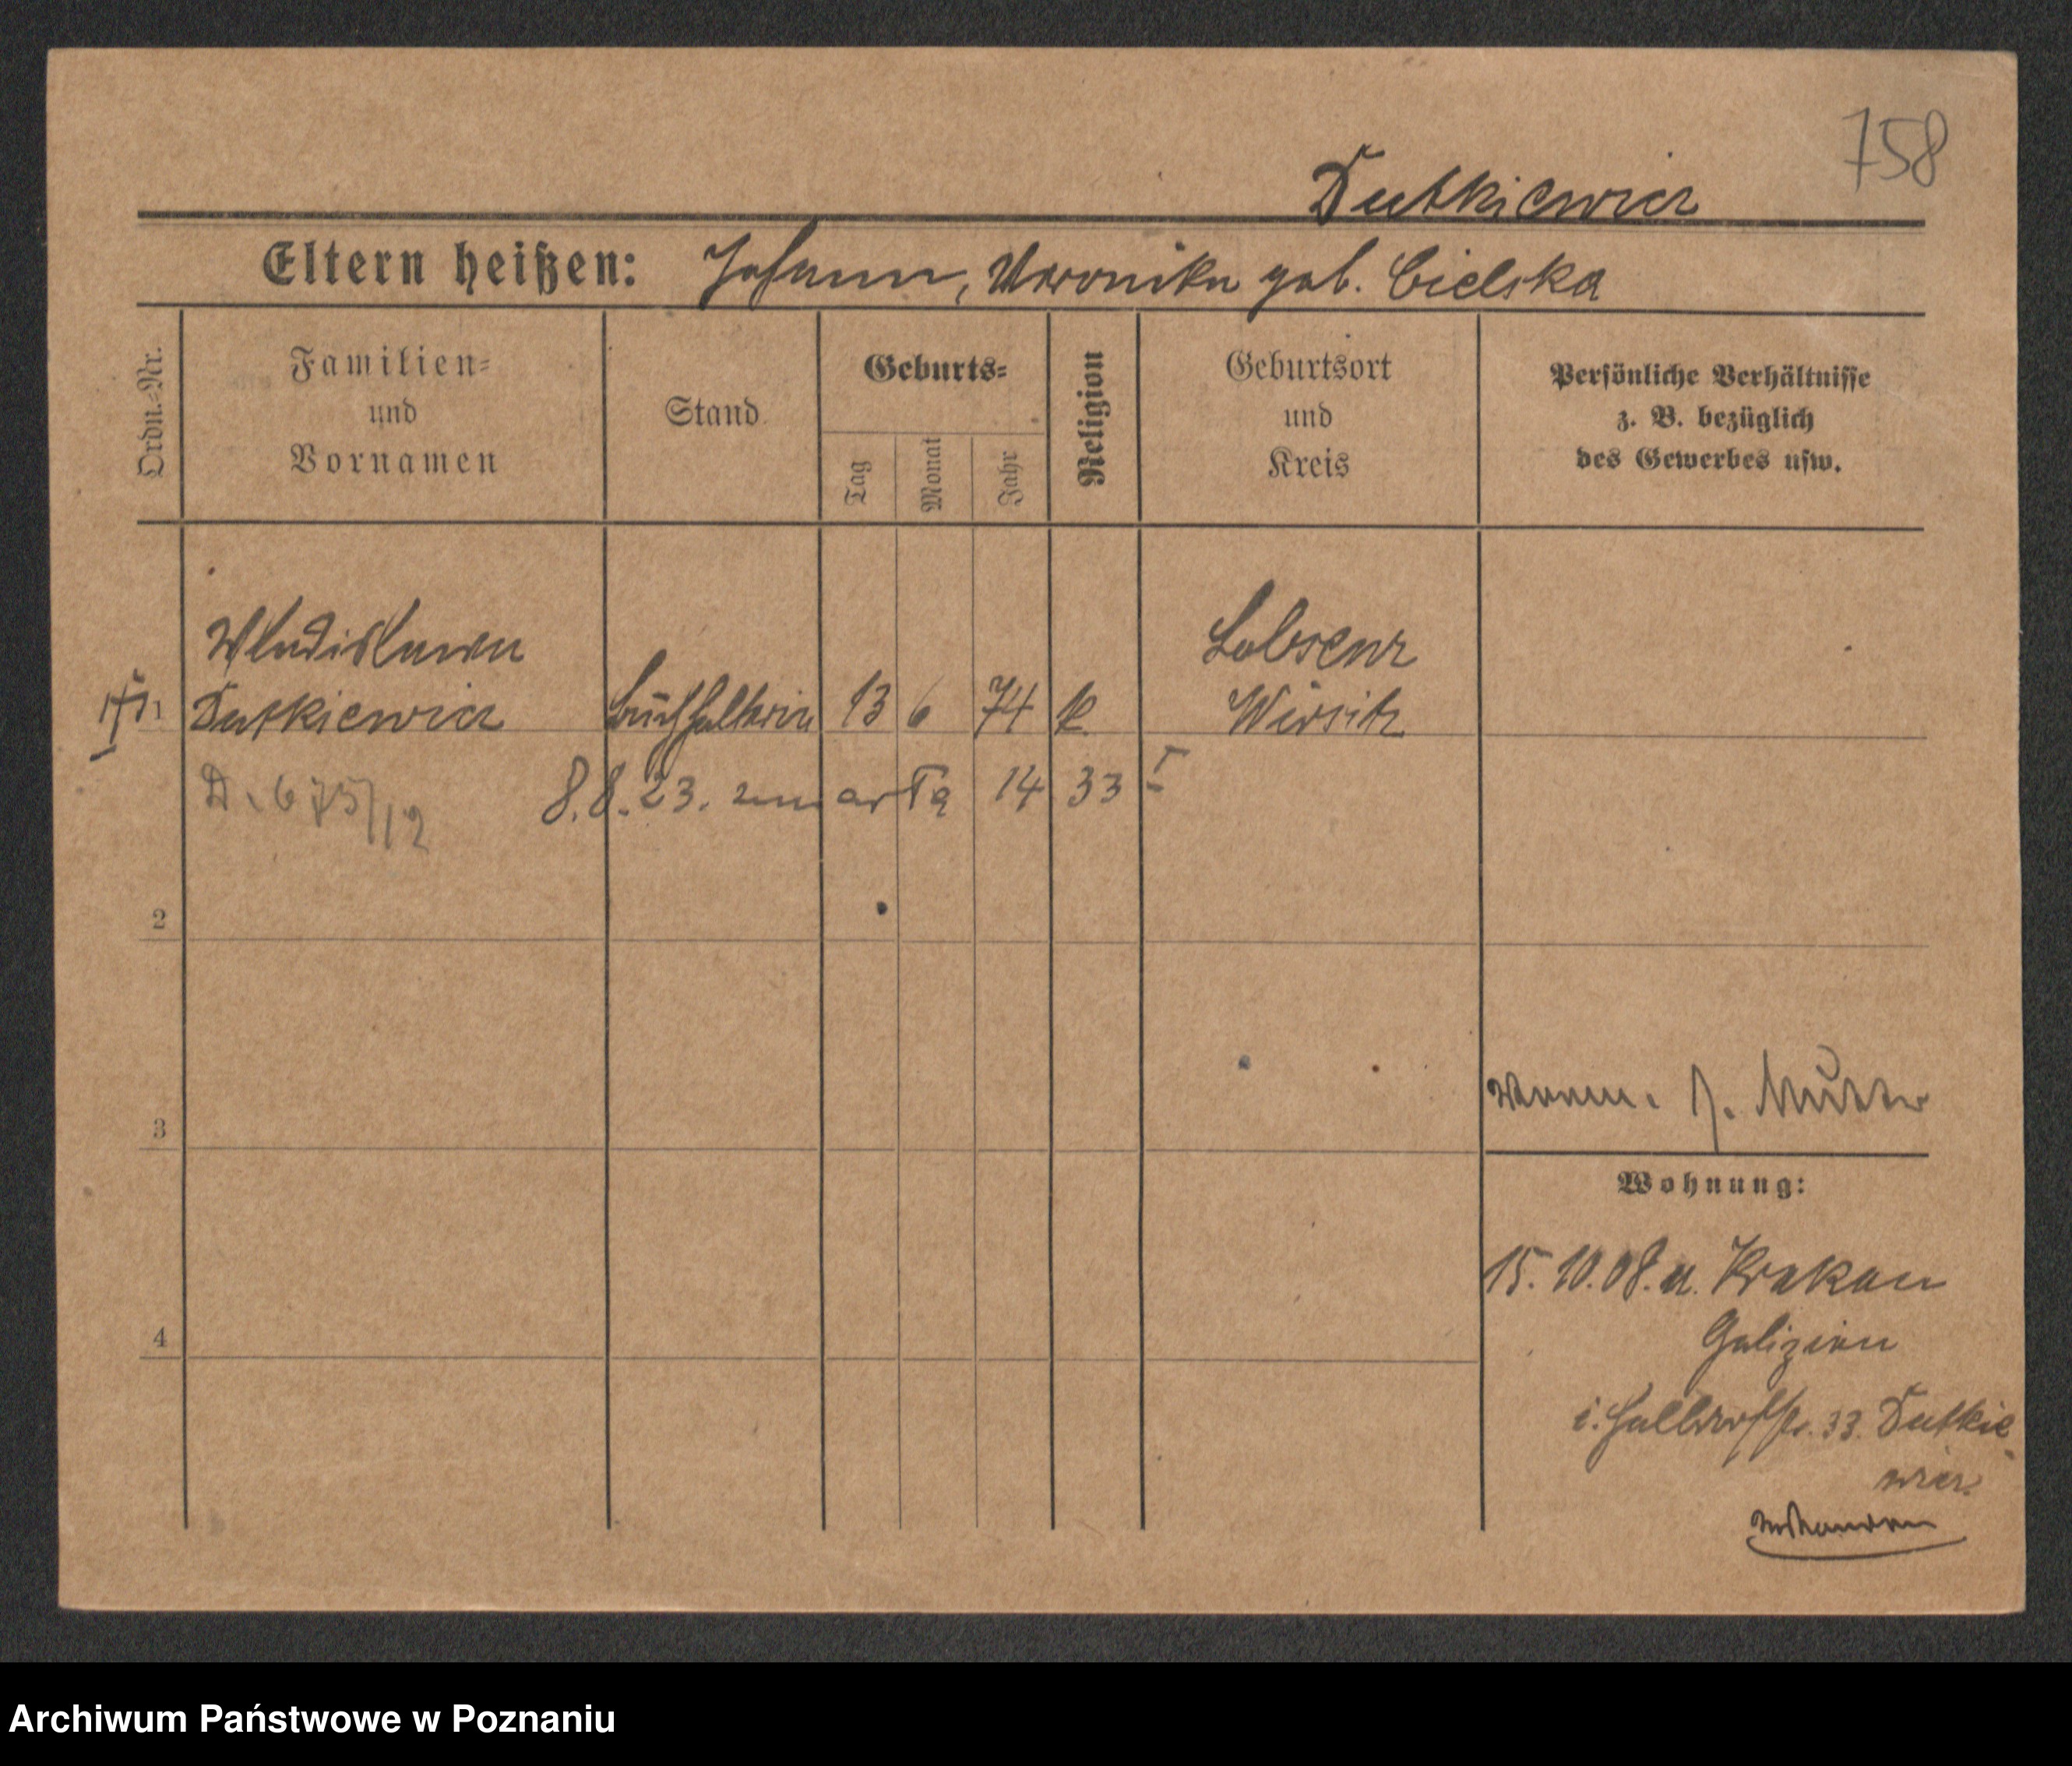 758
Dutkiewicz
Eltern heißen: Johann, Veronika geb. Cielska
Ordn.-Nr.
Familien-
und
Vornamen
Stand
Geburts-
Tag
Monat
Jahr
Religion
Geburtsort
und
Kreis
Persönliche Verhältnisse
z. B. bezüglich
des Gewerbes usw.
Wladislawa
Dutkiewicz
Buchhalterin 13 6 74 k.
Lobsenz
Wirsitz
1
D. 675/12
8.8.23. 14 33 I
2
3
4
Mutter
Wohnung:
15.10.08. Krakau
Galizien
33. Dutkie
wicz.